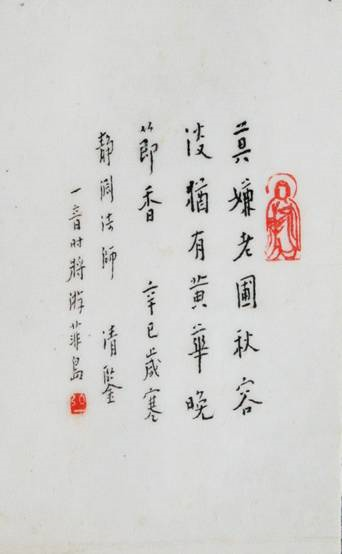 莫嫌老圃秋容
淡猶有黃華晚
節香 辛巳歲寒
静 法師 清鑒
一音时將游菲島